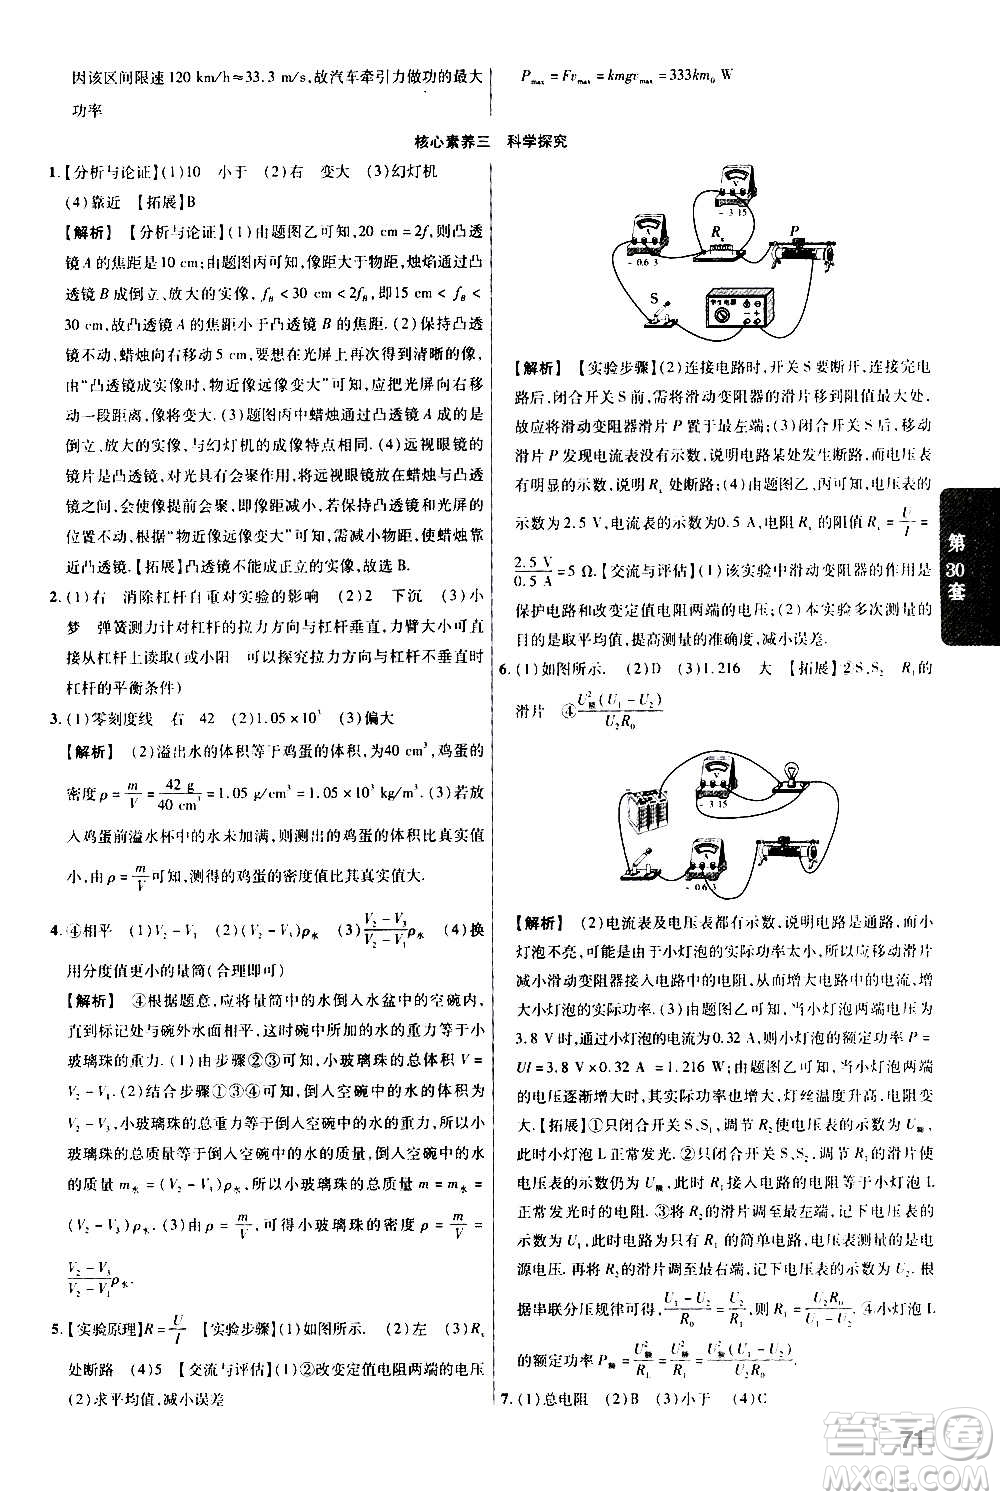 因该区间限速 120 km/h≈33.3 m/s,故汽车牵引力做功的最大
功率
P_max = Fv_max = kmgv_max = 333km₀ W
核心素养三　科学探究
1.【分析与论证】(1)10　小于　(2)右　变大　(3)幻灯机
(4)靠近　【拓展】B
【解析】【分析与论证】(1)由题图乙可知,20 cm=2f,则凸透
镜 A 的焦距是 10 cm;由题图丙可知,像距大于物距,烛焰通过凸透
镜 B 成倒立、放大的实像, f_B<30 cm<2f_B,即15 cm<f_B<
30 cm,故凸透镜 A 的焦距小于凸透镜 B 的焦距. (2)保持凸透
镜不动,蜡烛向右移动 5 cm,要想在光屏上再次得到清晰的像,
由“凸透镜成实像时,物近像远像变大”可知,应把光屏向右移
动一段距离,像将变大. (3)题图丙中蜡烛通过凸透镜 A 成的是
倒立、放大的实像,与幻灯机的成像特点相同. (4)远视眼镜的
镜片是凸透镜,对光具有会聚作用,将远视眼镜放在蜡烛与凸透
镜之间,会使像提前会聚,成在光屏的前方,若保持凸透镜和光屏的
位置不动,根据“物近像远像变大”可知,需减小物距,使蜡烛靠
近凸透镜.【拓展】凸透镜不能成正立的实像,故选 B.
2. (1)右　消除杠杆自重对实验的影响　(2)2　下沉　(3)小
梦　弹簧测力计对杠杆的拉力方向与杠杆垂直时,力臂大小可
从杠杆上读取(或小阳　可以探究拉力方向与杠杆不垂直时
杠杆的平衡条件)
3. (1)零刻度线　右　42　(2)1.05×10³　(3)偏大
【解析】 (2)溢出水的体积等于鸡蛋的体积,为40 cm³,鸡蛋的
密度 ρ = m/V = 42 g/40 cm³ = 1.05 g/cm³ = 1.05×10³ kg/m³. (3)若放
入鸡蛋前溢水杯中的水未加满,则测出的鸡蛋的体积比真实值
小,由 ρ = m/V 可知,测得的鸡蛋的密度值比真实值大.
4. ④相平　(1)V₂−V₁　(2)(V₂−V₃)ρ水　(3) (V₂−V₃)/(V₂−V₁) ρ水　(4)换
用分度值更小的量筒(合理即可)
【解析】 ④根据题意,应将量筒中的水倒入水盆中的空碗内,
直到标记处与碗外水面相平,此时倒入空碗中的水的重力等于小
玻璃珠的重力. (1)由步骤②③可知,小玻璃珠的总体积 V=
V₂−V₁. (2)结合步骤①③④可知,倒入空碗中的水的重力等于
小玻璃珠的总重力,故小玻璃珠的总质量等于倒入空碗中的水
的质量 m水=(V₂−V₃)ρ水,所以小玻璃珠的总质量 m=m水=
(V₂−V₃)ρ水. (3)由 ρ = m/V,可得小玻璃珠的密度 ρ = m/V =
(V₂−V₃)/(V₂−V₁) ρ水.
5.【实验原理】R = U/I　【实验步骤】(1)如图所示. (2)左　(3)Rₓ
处断路　(4)5　【交流与评估】(1)②改变定值电阻两端的电压
(2)求平均值,减小误差
V
− 3 15
A
− 0.6 3
Rₓ
P
S
学生电源
【解析】【实验步骤】(2)连接电路时,开关 S 要断开,连接完电
路后,在闭合开关前,需将滑动变阻器的滑片移到阻值最大处,
故应将滑动变阻器滑片 P 置于最左端;(3)闭合开关 S 后,移动
滑片 P 发现电流表没有示数,说明电路某处发生断路,电压表
有明显的示数,说明 Rₓ 处断路;(4)由题图乙、丙可知,电压表的
示数为 2.5 V,电流表的示数为0.5 A,则待测电阻的阻值 Rₓ = U/I =
2.5 V/0.5 A = 5 Ω.【交流与评估】(1)该实验中滑动变阻器的作用是
保护电路和改变定值电阻两端的电压;(2)本实验多次测量的
目的是取平均值,提高测量的准确度,减小误差.
6. (1)如图所示.　(2)D　(3)1.216　大　【拓展】②S、S₂　R₁的
滑片　④ U额²(U₁−U₂)/U₂R₀
V
− 3 15
A
−0.6 3
【解析】 (2)电流表及电压表都有示数,说明电路是通路,而小
灯泡不亮,可能是由于小灯泡的实际功率太小,所以应移动滑片
减小滑动变阻器接入电路中的电阻,从而增大电路中的电流,增
大小灯泡的实际功率. (3)由题图乙可知,当小灯泡两端电压为
3.8 V时,通过小灯泡的电流为0.32 A,则小灯泡的额定功率 P=
UI=3.8 V×0.32 A=1.216 W;由题图乙可知,当小灯泡两端
的电压逐渐增大时,其实际功率也增大,灯丝温度升高,电阻变
大.【拓展】①只闭合开关 S、S₁,调节 R₂ 使电压表的示数为 U额,
此时小灯泡 L 正常发光. ②只闭合开关 S、S₂,调节 R₁ 的滑片使
电压表的示数仍为 U额,此时 R₁ 接入电路的电阻等于小灯泡 L
正常发光时的电阻. ③将 R₂ 的滑片调至最左端,记下此时电压
表的示数为 U₁,此时电路可看作关于 R₁ 的简单电路,U₁ 等于电
源电压. 再将 R₂ 的滑片调至最右端,记下电压表的示数为 U₂,根
据串联分压规律可得, (U₁−U₂)/R₀ = U₂/R₁,则 R₁ = U₂R₀/(U₁−U₂). ④小灯泡 L
的额定功率 P额 = U额²/R₁ = U额²/R₁ = U额²(U₁−U₂)/U₂R₀.
7. (1)总电阻　(2)B　(3)小于　(4)C
第30套
71
答案圈
MXQE.COM